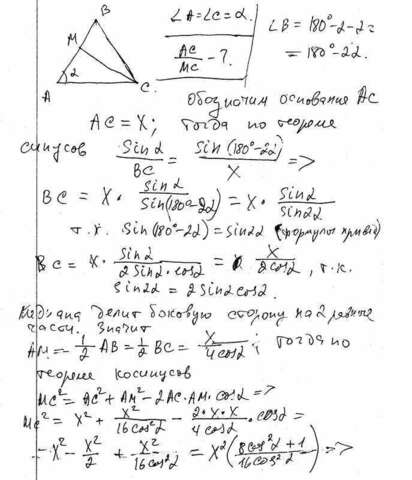 B
M
A
2
C.
∠A=∠C=α.
AC/MC - ?.
∠B = 180°-2-2=
= 180°-2α.
Обозночим основание AC
AC = X; тогда по теореме
синусов Sinα/BC = Sin(180°-2α)/X =>
BC = X · Sinα/Sin(180°-2α) = X · Sinα/Sin2α
т.к. Sin(180°-2α)=Sin2α (формулы привид)
BC = X · Sinα/2Sinα·cosα = X/2cosα, т.к.
Sin2α = 2Sinα cosα.
Медиана делит боковую сторону на 2 равные
части. Значит
AM = 1/2 AB = 1/2 BC = X/4cosα; тогда по
теореме косинусов
MC² = AC² + AM² - 2AC·AM·cosα =>
MC² = X² + X²/16cos²α - 2·X·X/4cosα · cosα =
= X² - X²/2 + X²/16cos²α = X²(8cos²α+1/16cos²α) =>